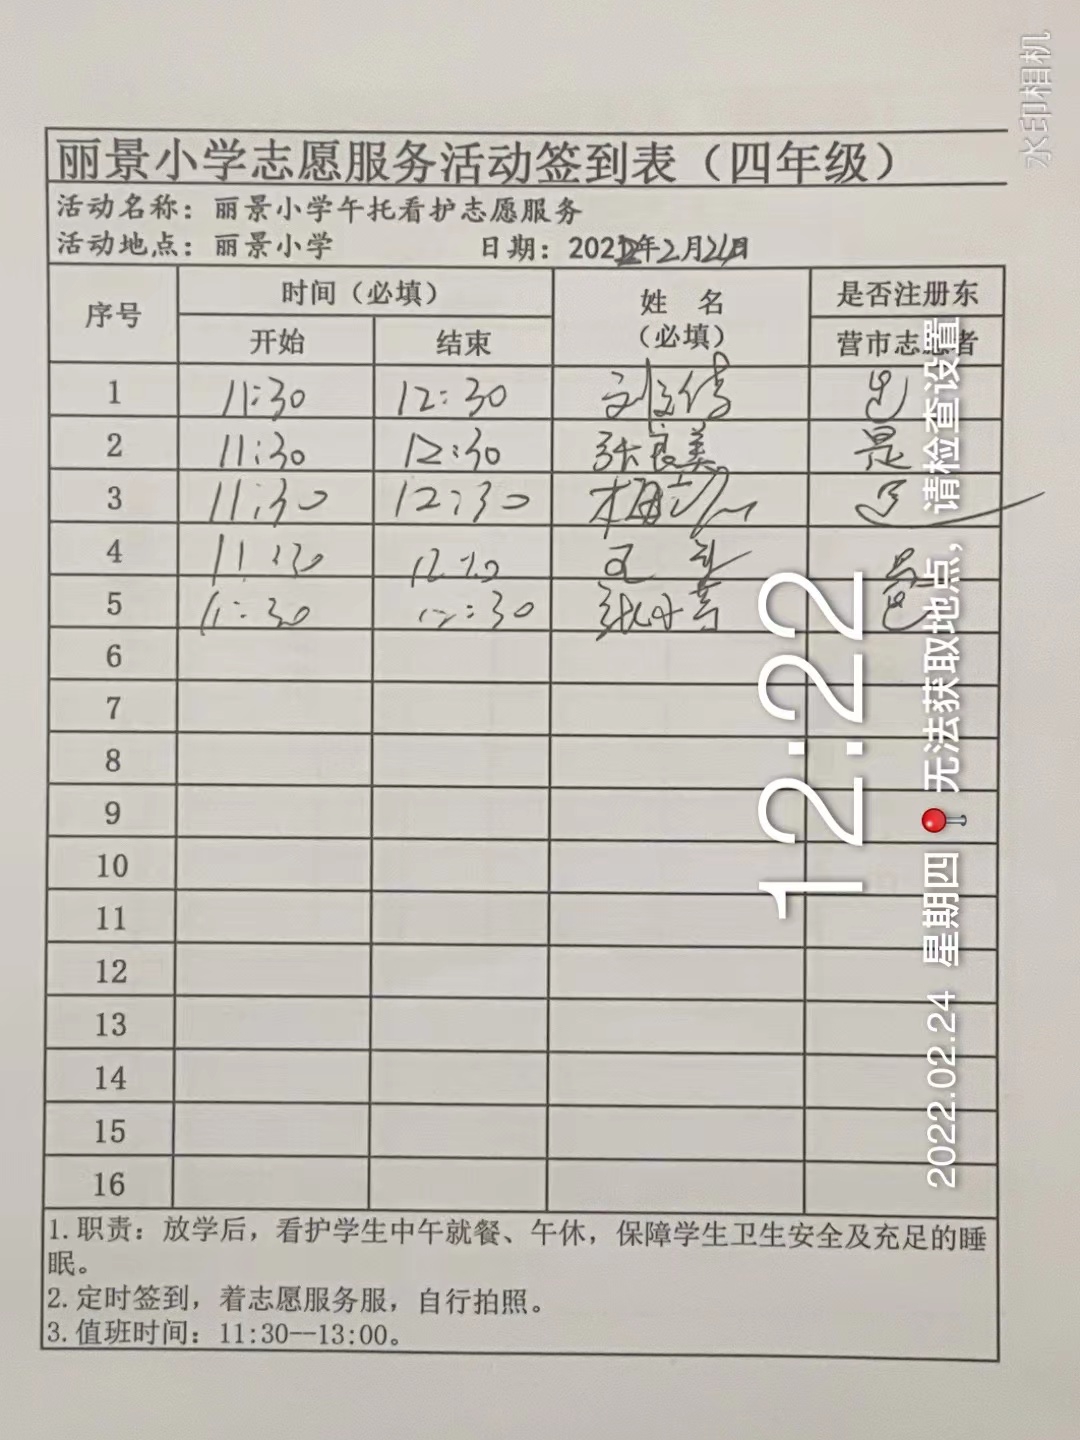 水印相机
丽景小学志愿服务活动签到表（四年级）
活动名称：丽景小学午托看护志愿服务
活动地点：丽景小学 日期：2022年2月24日
序号 时间（必填） 姓 名（必填） 是否注册东营市志愿者
开始 结束
1 11:30 12:30 是
2 11:30 12:30 张良美 是
3 11:30 12:30 是
4 11:30 12:30 是
5 11:30 12:30 是
6
7
8
9
10
11
12
13
14
15
16
1.职责：放学后，看护学生中午就餐、午休，保障学生卫生安全及充足的睡
眠。
2.定时签到，着志愿服务服，自行拍照。
3.值班时间：11:30--13:00。
12:22
2022.02.24 星期四 无法获取地点，请检查设置